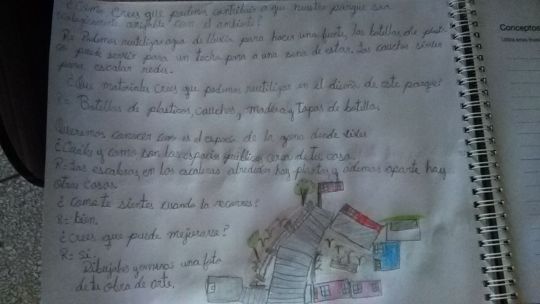 ¿Cómo Crees que podrías contribuir a que nuestro parque sea
ecologicamente amigable con el ambiente?
R= Podemos reutilizar agua de lluvia para hacer una fuente, las botellas de plastico
puede servir para un techo para a una zona de estar. Los cauchos sirven
para escalar
¿Que materiales Crees que podamos reutilizar en el diseño de este parque?
R= Botellas de plasticos, cauchos, madera y tapas de botella.
Queremos conocer como es el espacio de la zona donde vives
¿Cuales y como son los espacios públicos cerca de tu casa.
R= Las escaleras, en las escaleras alrededor hay plantas y ademas aparte hay
otras casas.
¿como te sientes cuando la recorres?
R= bien.
¿Crees que puede mejorarse?
R= si.
Dibujalos y envianos una foto
de tu obra de arte.
Conceptos